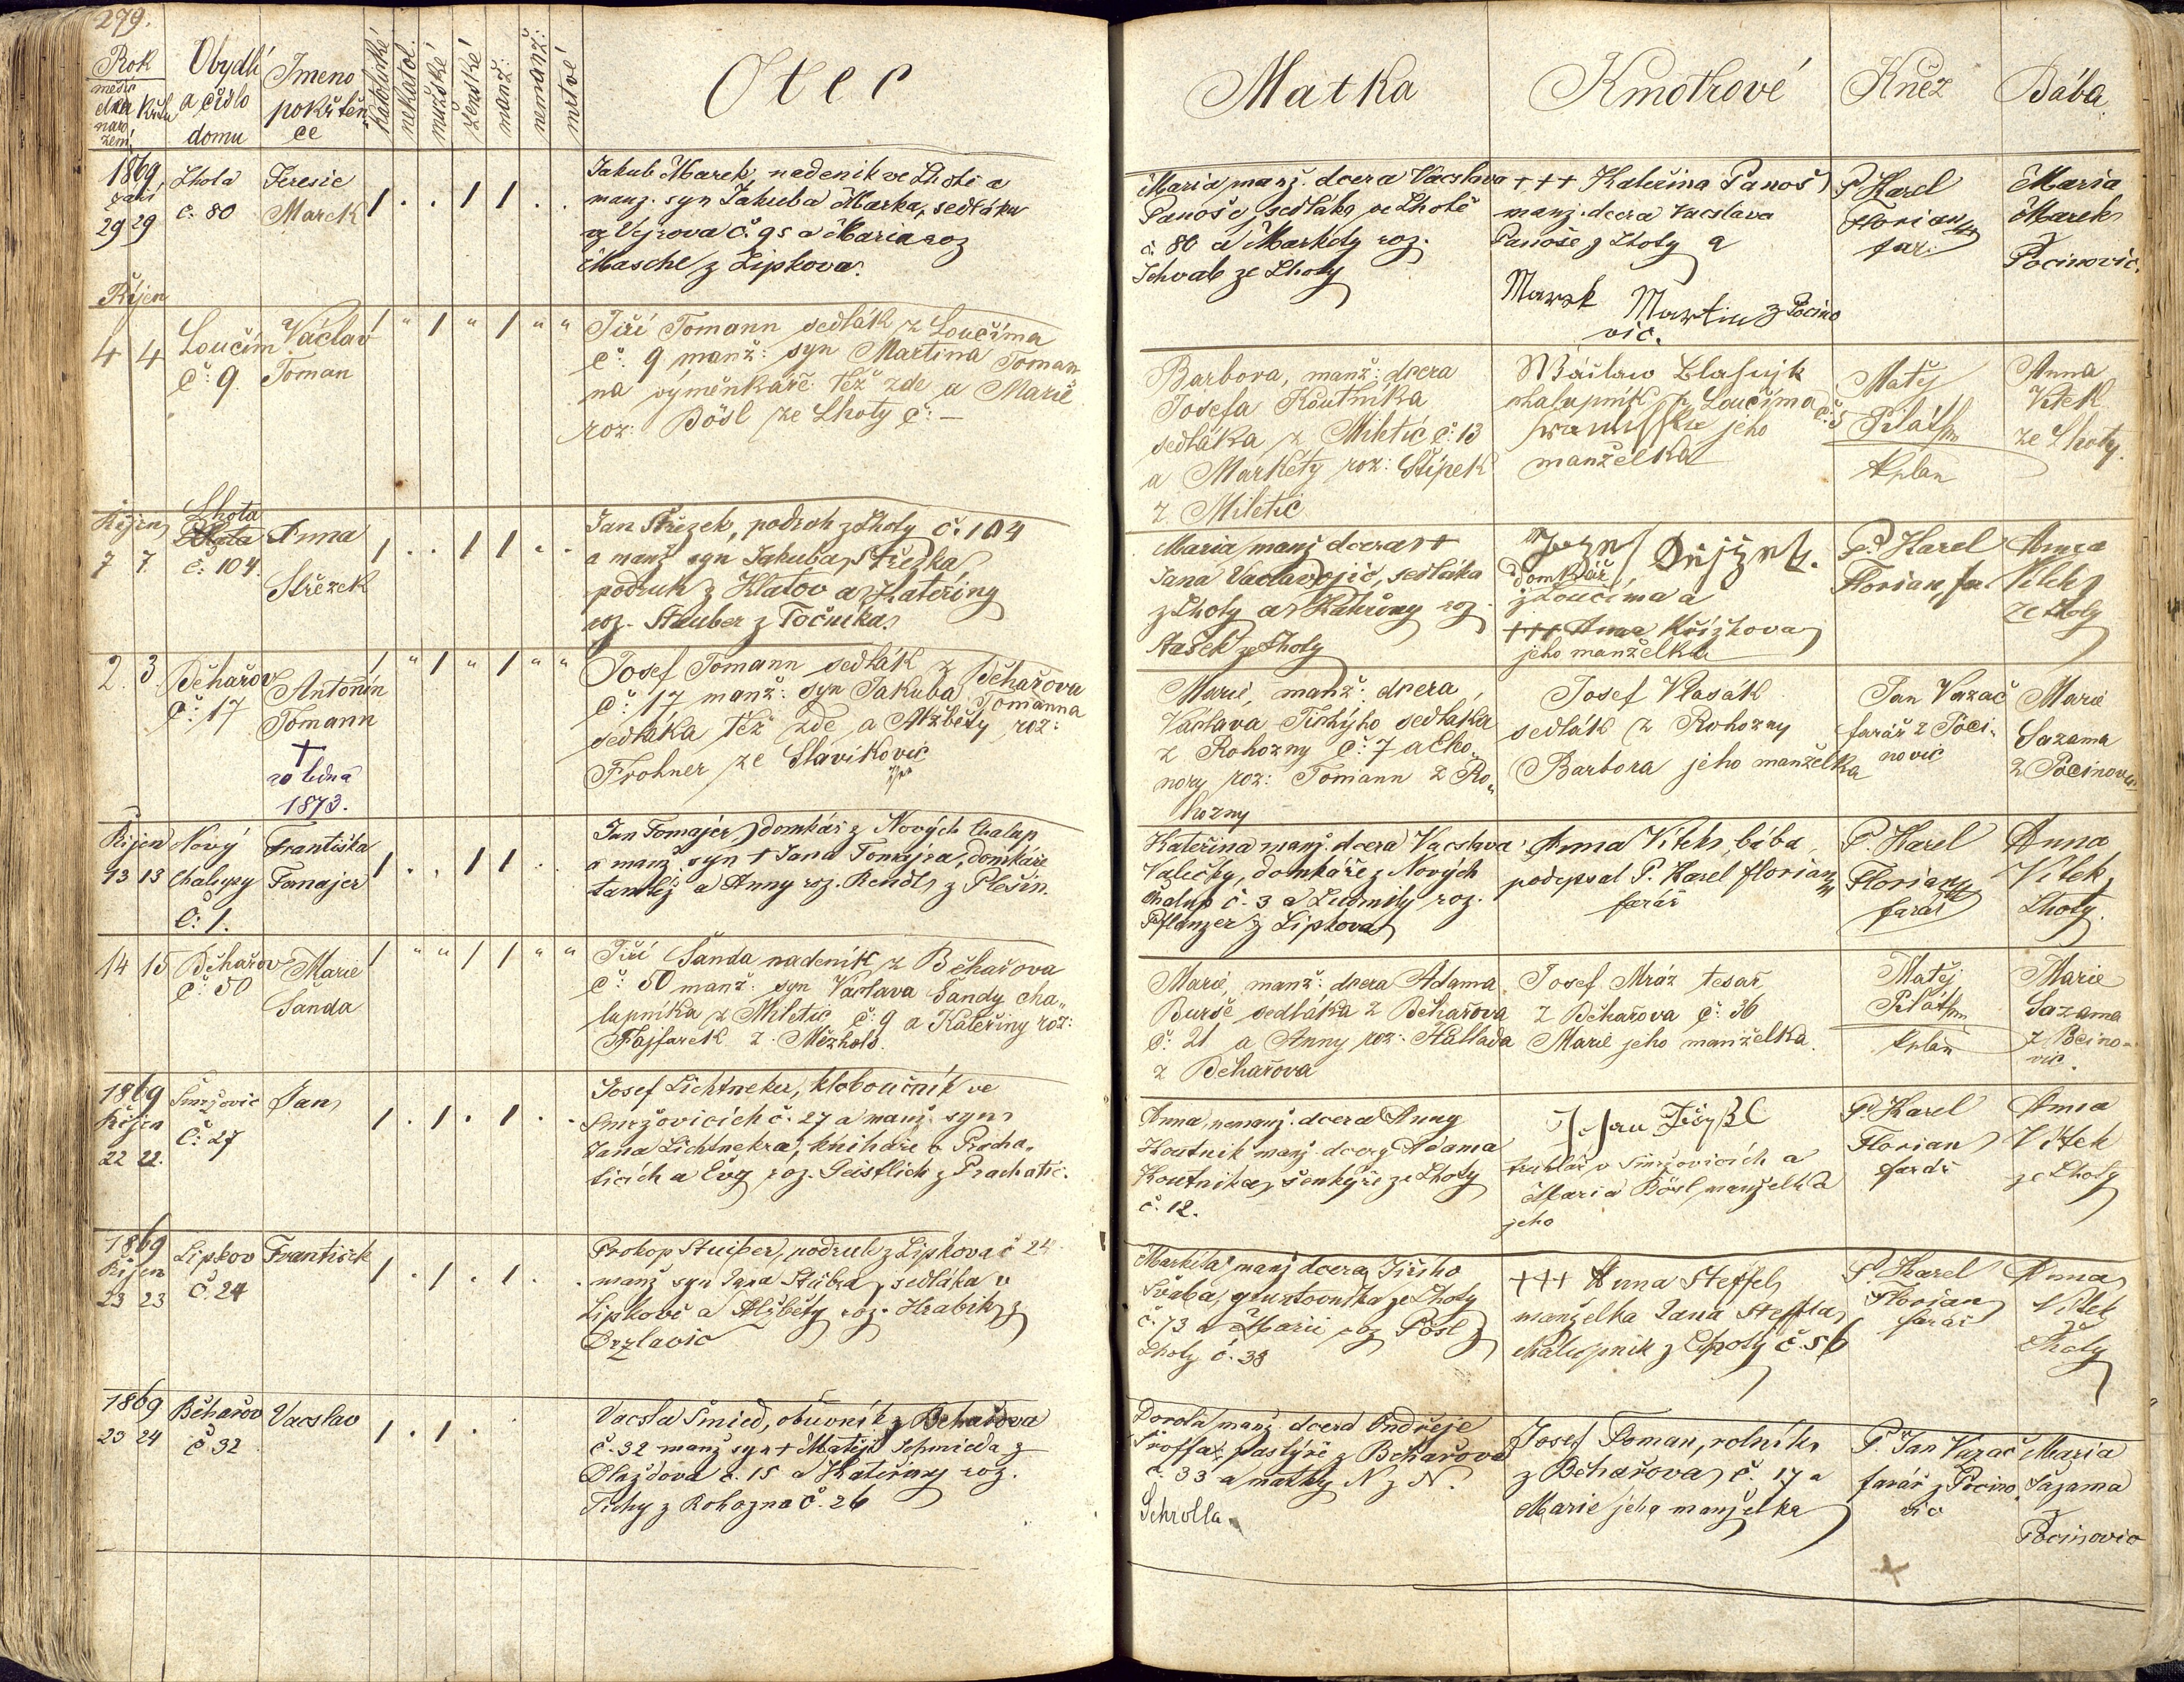 279.
Rok
Obydlí
a čislo
domu
Jmeno
pokřtěn
ce
katolické
nekatol.
mužské
ženské
manž:
nemanž:
mrtvé
Otec
Matka
Kmotrové
Kněz
Bába
1869
září
29 29
Lhota
č. 80
Teresie
Marek
Jakub Marek, nadeník ve Lhotě a
manž. syn Jakuba Marka, sedláka
z Vejrova č. 95 a Maria roz
Masche z Lipkova.
Maria manž. dcera Vacslava
Panoše, sedláka ve Lhotě
č. 80 a Markéty roz.
Schvab ze Lhoty
+++ Kateřina Panoš
manž. dcera Vacslava
Panoše z Lhoty a
Marek Martin z Pocino
vic.
P. Karel
Florian
far.
Maria
Marek
z
Pocinovic.
Říjen
4 4
Loučim
č: 9.
Václav
Toman
Jiří Tomann sedlák z Loučíma
č: 9 manž: syn Martina Toman
na výměnkáře též zde a Marie
roz: Bösl ze Lhoty č: —
Barbora, manž: dcera
Josefa Koutníka
sedláka z Miletic č: 13
a Markéty roz: Štípek
z Miletic
chalupník z Loučíma č: 5
jeho
manželka
Matěj
kplan
Anna
Vítek
ze Lhoty.
Říjen
7 7.
Lhota
č: 104.
Anna
Střezek
Jan Střezek, podruh z Lhoty č. 104
a manž syn Jakuba Střezka,
podruh z Klatov a Kateřiny
roz. Stauber z Točníka.
Maria manž dcera ++
Jana Vaclavojic, sedláka
z Lhoty a Kateřiny roz.
Stašek ze Lhoty
domkář
z Loučíma a
+++ Anna Křížkova
jeho manželka
P. Karel
Florian, far.
Anna
Vítek
ze Lhoty
2. 3.
Běhařov
č: 17
Antonín
Tomann
†
20 ledna
1873.
Josef Tomann sedlák z Běhařova
č: 17 manž: syn Jakuba Tomanna
sedláka též zde, a Alžběty roz:
Frohner ze Slavíkovic
Marie, manž: dcera
Václava Tichýho sedláka
z Rohozny č: 7 a Eleo
nory roz: Tomann z Ro„
hozny
Josef Vlasák
sedlák z Rohozny
Barbora jeho manželka
Jan Vazač
farář z Poci.
novic
Marie
Sazama
z Pocinovic
Říjen
13 13
Nový
Chalupy
č: 1.
Františka
Tomajer
Jan Tomajer, domkář z Nových Chalup
a manž syn + Jana Tomajra, domkáře
tamtéž a Anny roz. Rendl z Plešin.
Kateřina manž. dcera Vacslava
Valečky, domkáře z Nových
Chalup č. 3 a Ludmily roz.
Pflanzer z Lipkova
Anna Vítek, bába,
podepsal P. Karel Florian
farář
P. Karel
Florian
farář
Anna
Vítek,
Lhoty.
14 15
Běhařov
č: 50
Marie
Šanda
Jiří Šanda nadeník z Běhařova
č: 50 manž: syn Václava Šandy cha„
lupníka z Miletic č: 9 a Kateřiny roz:
Fajfarek z Mezholz.
Marie, manž: dcera Adama
Burše sedláka z Běhařova
č: 21 a Anny roz: Hallada
z Běhařova
Josef Mráz tesař,
z Běhařova č: 36
Marie jeho manželka.
Matěj
kplan
Marie
Sazama
z Pocino„
vic.
1869
Říjen
22 22.
Smržovic
č: 27
Jan
Josef Lichtneker, kloboučník ve
Smržovicích č. 27 a manž. syn
Jana Lichtnekra, knihaře v Pracha„
ticích a Evy roz. Geistlich z Prachatic.
Anna, nemanž. dcera Anny
Koutník manž. dcery Adama
Koutníka, šenkýře ze Lhoty
č. 12.
truhlář v Smržovicích a
Maria Bösl manželka
jeho
P. Karel
Florian
farář
Anna
Vítek
ze Lhoty
1869
Říjen
23 23
Lipkov
č. 24
František
Prokop Stuiber, podruh z Lipkova č 24
manž syn Jana Stuibra, sedláka v
Lipkově a Alžběty roz. Hrabík z
Brzlavic
Markéta manž dcera Jiřího
Švába, gruntovníka ze Lhoty
č. 73 a Marie roz Posl z
Lhoty č. 38
+++ Anna Steffel,
manželka Jana Steffla,
chalupník z Lhoty č 56
P. Karel
Florian
farář
Anna
Vítek
z
Lhoty
1869
23 24
Běhařov
č 32
Vacslav
Vacsla Šmied, obuvník z Běhařova
č. 32 manž syn + Matěje Schmieda z
Olaždova č. 15 a Kateřiny roz.
Tichy z Rohozna č. 26
Dorota manž. dcera Ondřeje
pastýře z Běhařova
č. 33 a matky N z N.
Schrolla
Josef Toman, rolník
z Běhařova, č. 17 a
Marie jeho manželka
P. Jan Vazač
farář z Pocino„
vic
Maria
Sazama
z
Pocinovic